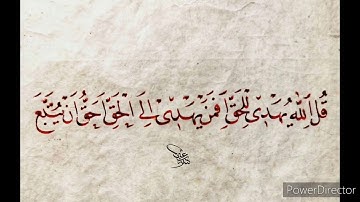 قُلِ اللّٰهُ يَهْدِي لِلْحَقِّ أَفَمَنْ يَهْدِي إِلَى الْحَقِّ أَحَقُّ أَنْ يُتَّبَعَ
PowerDirector